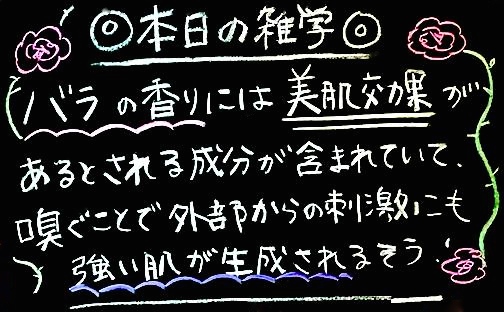 ◎本日の雑学◎
バラの香りには美肌効果が
あるとされる成分が含まれていて、
嗅ぐことで外部からの刺激にも
強い肌が生成されるそう!